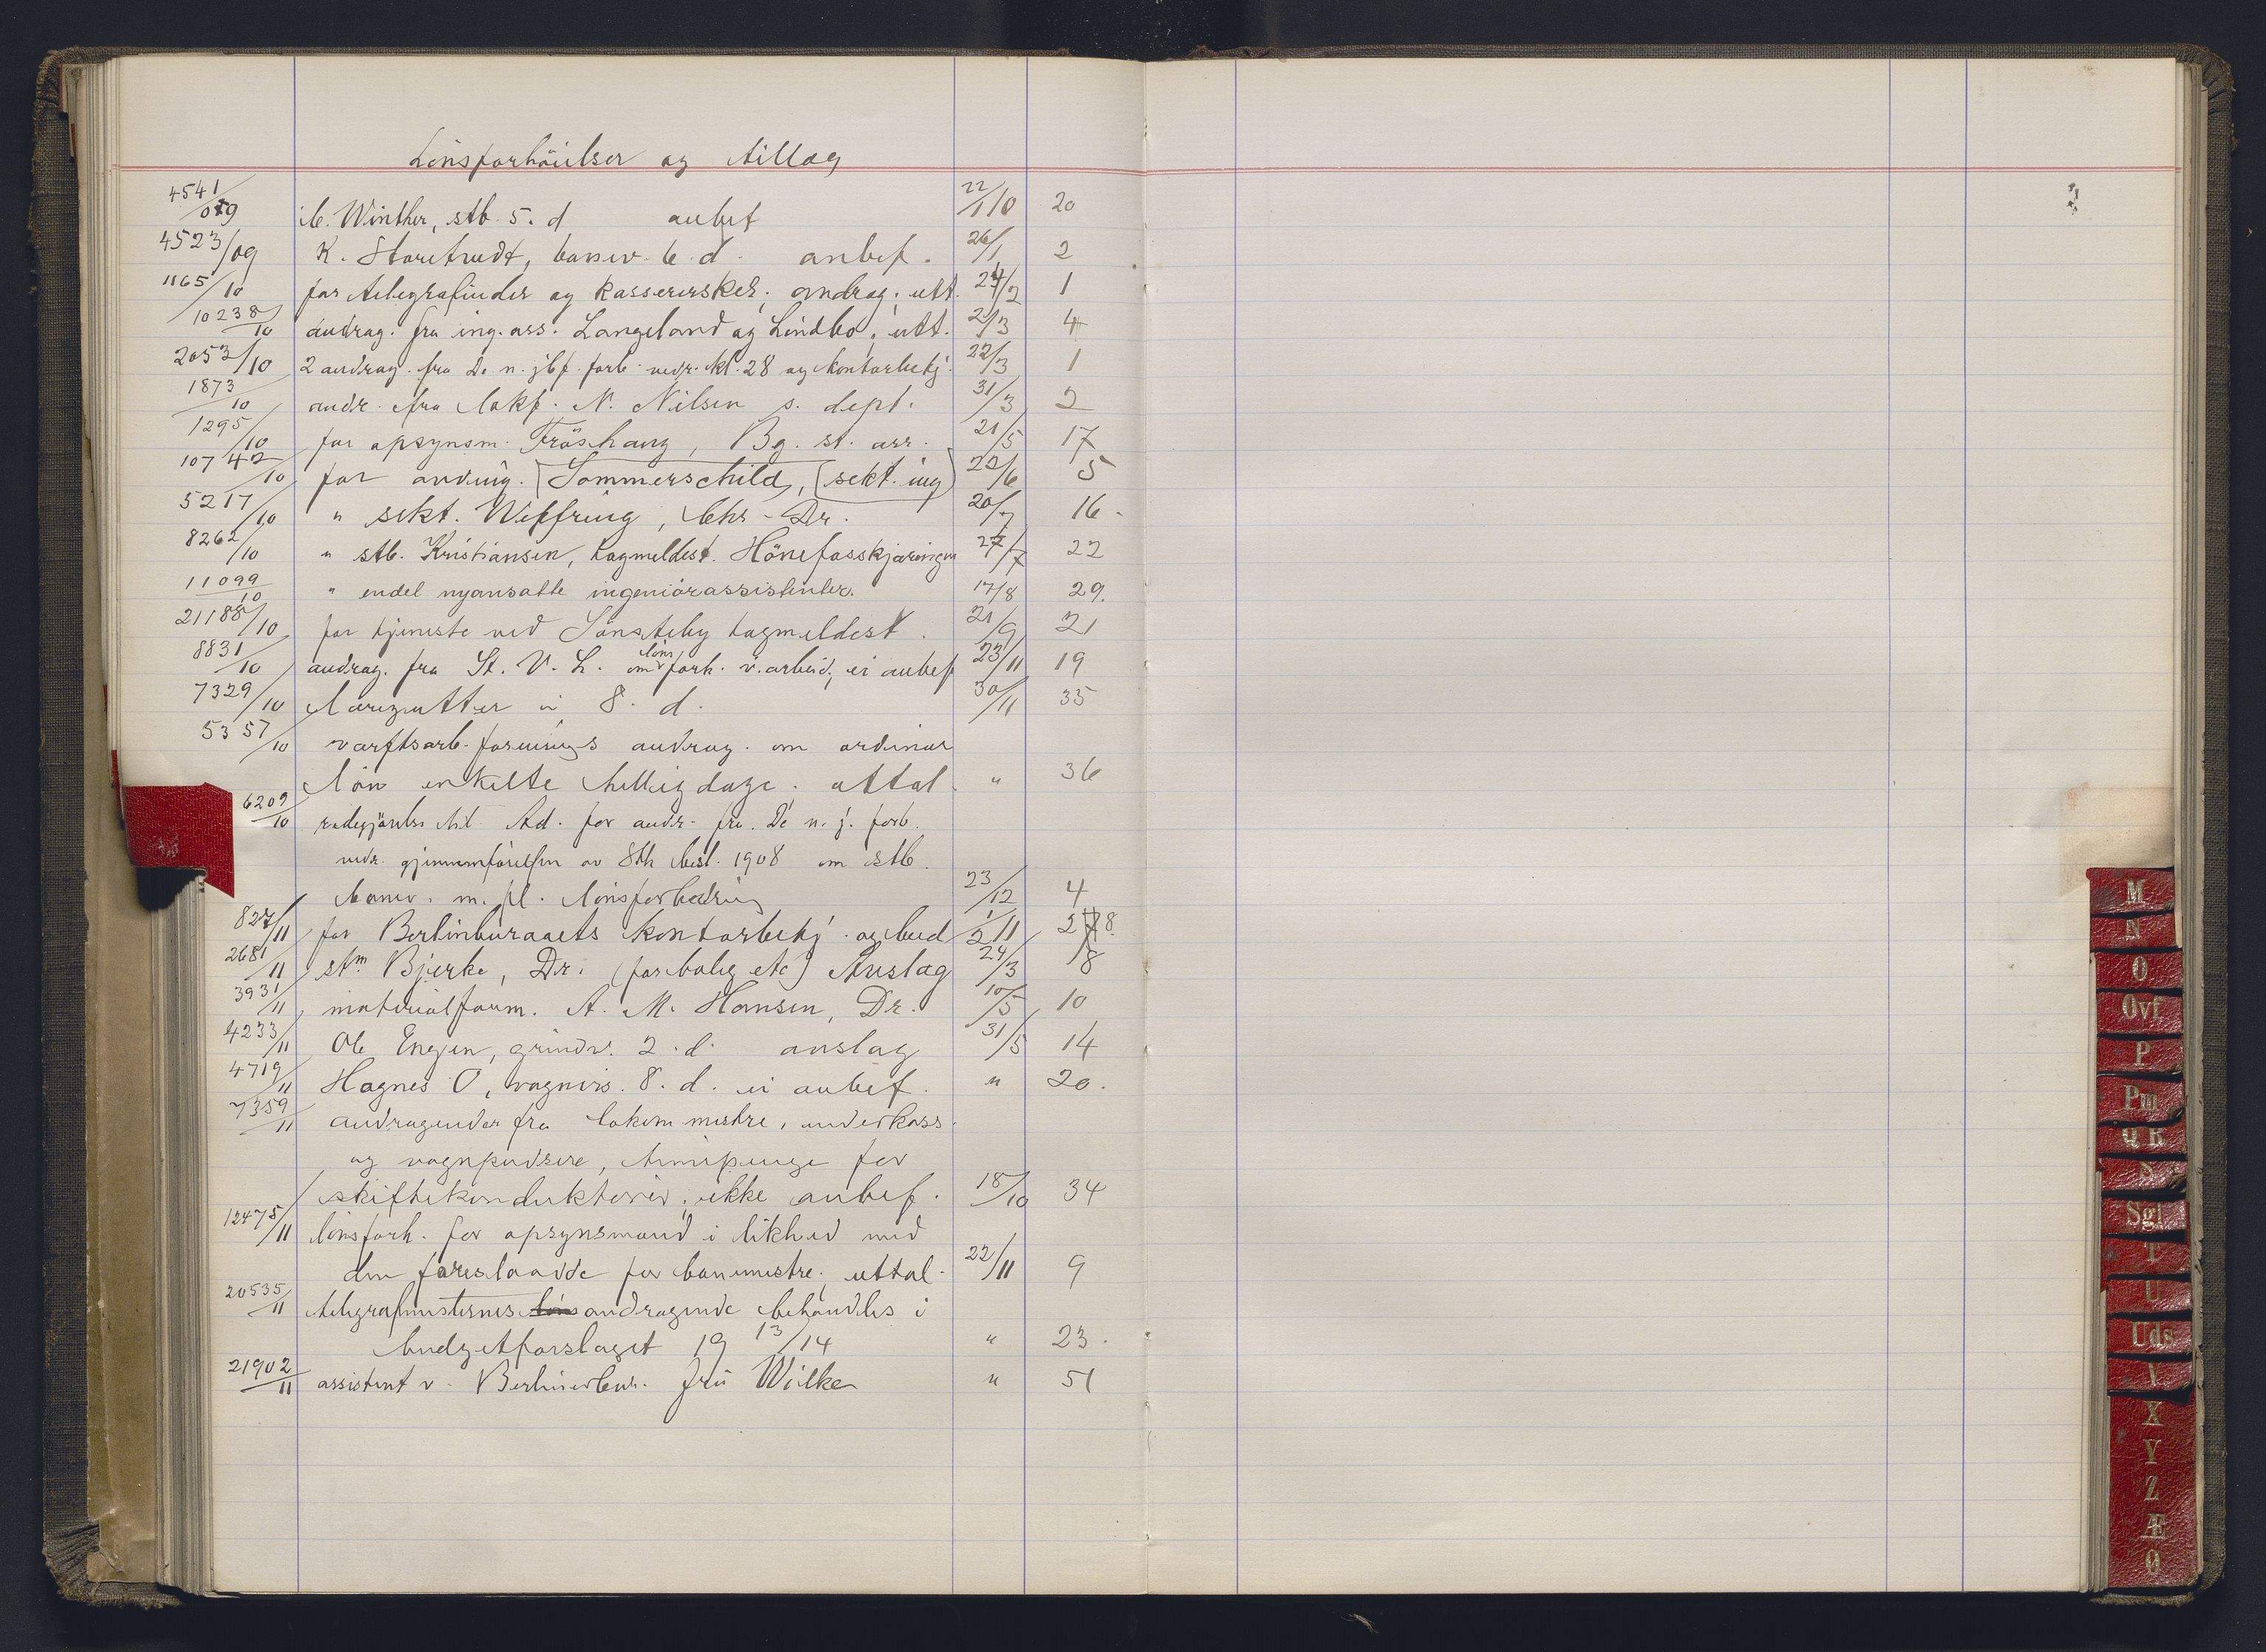 Lönsforhöielser og tillæg
4541/09 C. Winther, stb. 5. d anbef 22/1 10 20
4523/09 K. Storetvedt, banev. 6. d. anbef. 26/1 2
1165/10 for telegrafinder og kassererskes; andrag; utt. 24/2 1
10238/10 andrag. fra ing. ass. Langeland og Lindbo; utt. 2/3 4
2053/10 2 andrag. fra De n. jbf. forb. vedr. kl. 28 og kontorbetj. 22/3 1
1873/10 andr. fra lokf. N. Nilsen s. dept. 31/3 2
1295/10 for opsynsm. Fröshaug, Bg. st. ass. 21/5 17
10742/10 for avding. Sommerschild, (sekt. ing) 22/6 5
5217/10 " sekt. Wefring, Chr-Dr. 20/7 16.
8262/10 " stb. Kristiansen, togmeldest. Hönefosskjæringen 27/7 22
11099/10 " endel nyansatte ingeniörassistenter. 17/8 29.
21188/10 for tjeneste ved Sönsteby togmeldest. 21/9 21
8831/10 andrag. fra St. V. L. om löns forh. v. arbeid; ei anbef 23/11 19
7329/10 læregutter i 8. d. 30/11 35
5357/10 varftsarb. forenings andrag. om ordinær
lön enkelte helligdage. uttal. " 36
6209/10 redegjörelse til Ad. for andr. fra De n. j. forb.
vedr. gjennemförelsen av Sth besl. 1908 om stb.
banev. m. fl. lönsforbedring 23/12 4
827/11 for Berlinbüraaets kontorbetj. og bud 2/1 11 278.
2681/11 stm Bjerke, Dr. (for bolig etc) Anslag 24/3 8
3931/11 materialform. A. M. Hansen, Dr. 10/5 10
4233/11 Ole Engen, grindv. 2. d. anslag 31/5 14
4719/11 Hagnes O, vognvis. 8. d. ei anbef. " 20.
7359/11 andragender fra lokommestre, underkass.
og vognpudsere, timepenge for
skiftekonduktörer; ikke anbef. 18/10 34
12475/11 lönsforh. for opsynsmænd i likhed med
den foreslaaede for banemestre; uttal. 22/11 9
20535/11 telegrafmesternes andragende behandles i
budgetforslaget 19 13/14 " 23.
21902/11 assistent v. Berlinerbur. frü Wilke " 51
M
N
O
Ovf
P
Pm
Q R
S
Sgl
T
U
Uds
V
X
Y
Z
Æ
Ø